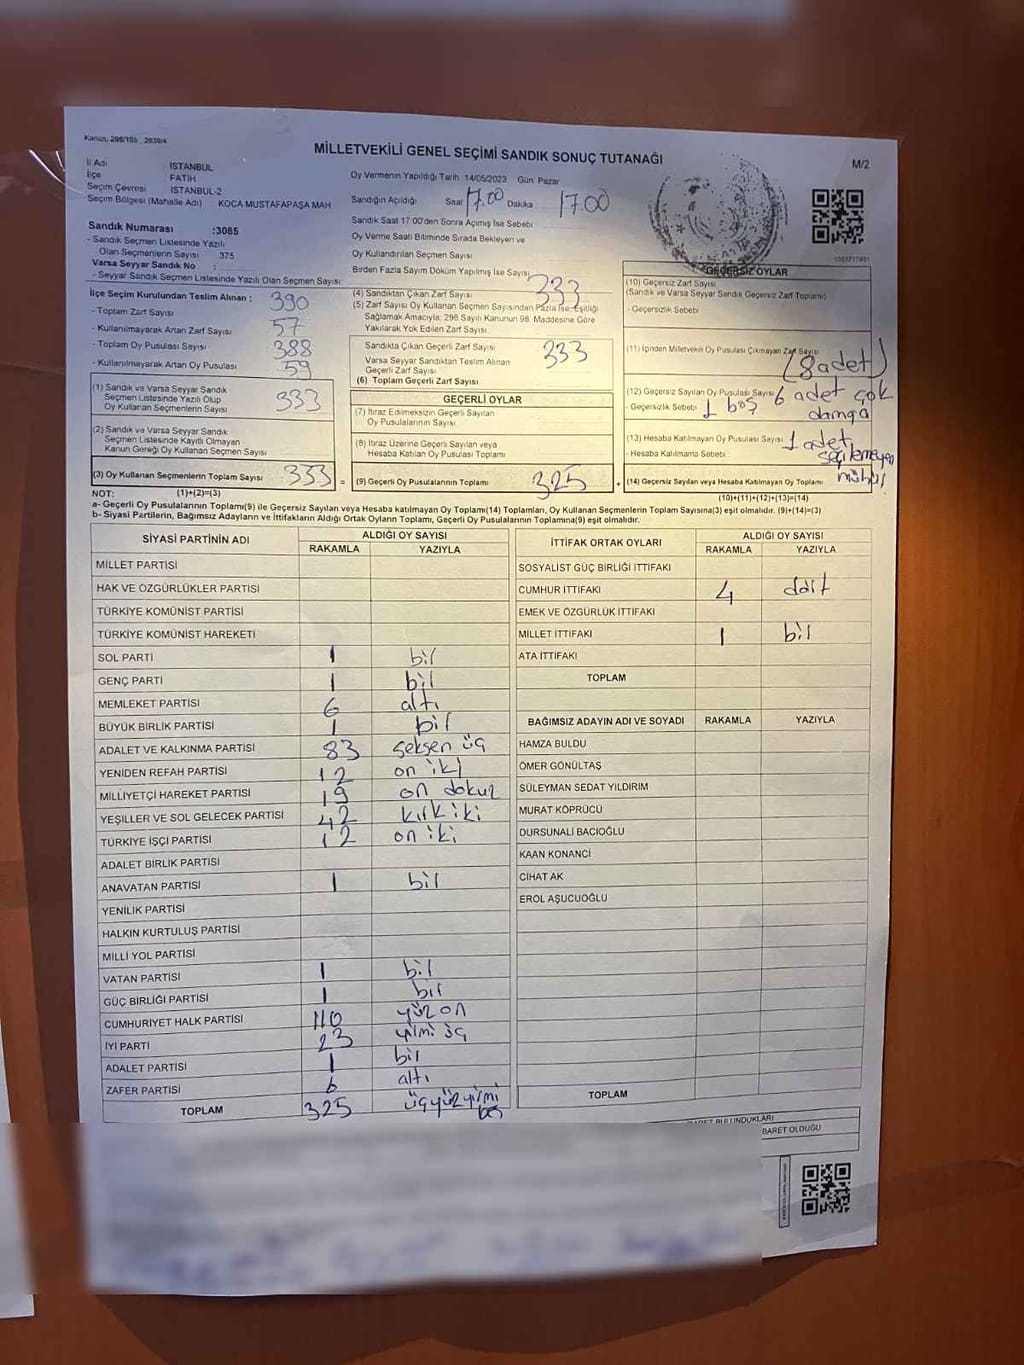 Kanun, 298/105 , 2839/4
MİLLETVEKİLİ GENEL SEÇİMİ SANDIK SONUÇ TUTANAĞI
M/2
İl Adı İSTANBUL
İlçe FATİH
Seçim Çevresi İSTANBUL-2
Seçim Bölgesi (Mahalle Adı) KOCA MUSTAFAPAŞA MAH
Oy Vermenin Yapıldığı Tarih 14/05/2023 Gün: Pazar
Sandığın Açıldığı Saat 17.00 Dakika 17.00
Sandık Saat 17.00'den Sonra Açılmış İse Sebebi
Oy Verme Saati Bitiminde Sırada Bekleyen ve
Oy Kullandırılan Seçmen Sayısı
Birden Fazla Sayım Döküm Yapılmış İse Sayısı
Sandık Numarası :3085
- Sandık Seçmen Listesinde Yazılı
Olan Seçmenlerin Sayısı 375
Varsa Seyyar Sandık No :
- Seyyar Sandık Seçmen Listesinde Yazılı Olan Seçmen Sayısı:
İlçe Seçim Kurulundan Teslim Alınan :
- Toplam Zarf Sayısı 390
- Kullanılmayarak Artan Zarf Sayısı 57
- Toplam Oy Pusulası Sayısı 388
- Kullanılmayarak Artan Oy Pusulası 59
(1) Sandık ve Varsa Seyyar Sandık
Seçmen Listesinde Yazılı Olup
Oy Kullanan Seçmenlerin Sayısı 333
(2) Sandık ve Varsa Seyyar Sandık
Seçmen Listesinde Kayıtlı Olmayan
Kanun Gereği Oy Kullanan Seçmen Sayısı
(3) Oy Kullanan Seçmenlerin Toplam Sayısı 333 =
(4) Sandıktan Çıkan Zarf Sayısı 333
(5) Zarf Sayısı Oy Kullanan Seçmen Sayısından Fazla İse, Eşitliği
Sağlamak Amacıyla, 298 Sayılı Kanunun 98. Maddesine Göre
Yakılarak Yok Edilen Zarf Sayısı
Sandıkta Çıkan Geçerli Zarf Sayısı 333
Varsa Seyyar Sandıktan Teslim Alınan
Geçerli Zarf Sayısı
(6) Toplam Geçerli Zarf Sayısı
GEÇERLİ OYLAR
(7) İtiraz Edilmeksizin Geçerli Sayılan
Oy Pusulalarının Sayısı
(8) İtiraz Üzerine Geçerli Sayılan veya
Hesaba Katılan Oy Pusulası Toplamı
(9) Geçerli Oy Pusulalarının Toplamı 325 +
GEÇERSİZ OYLAR
(10) Geçersiz Zarf Sayısı
(Sandık ve Varsa Seyyar Sandık Geçersiz Zarf Toplamı)
- Geçersizlik Sebebi
(11) İçinden Milletvekili Oy Pusulası Çıkmayan Zarf Sayısı
(8 adet)
(12) Geçersiz Sayılan Oy Pusulası Sayısı 6 adet çok
- Geçersizlik Sebebi 1 boş damga
(13) Hesaba Katılmayan Oy Pusulası Sayısı 1 adet
- Hesaba Katılmama Sebebi seçilemeyen
(14) Geçersiz Sayılan veya Hesaba Katılmayan Oy Toplamı mühür
NOT: (1)+(2)=(3)
(10)+(11)+(12)+(13)=(14)
a- Geçerli Oy Pusulalarının Toplamı(9) ile Geçersiz Sayılan veya Hesaba katılmayan Oy Toplam(14) Toplamları, Oy Kullanan Seçmenlerin Toplam Sayısına(3) eşit olmalıdır. (9)+(14)=(3)
b- Siyasi Partilerin, Bağımsız Adayların ve İttifakların Aldığı Ortak Oyların Toplamı, Geçerli Oy Pusulalarının Toplamına(9) eşit olmalıdır.
SİYASİ PARTİNİN ADI ALDIĞI OY SAYISI
RAKAMLA YAZIYLA
MİLLET PARTİSİ
HAK VE ÖZGÜRLÜKLER PARTİSİ
TÜRKİYE KOMÜNİST PARTİSİ
TÜRKİYE KOMÜNİST HAREKETİ
SOL PARTİ 1 bir
GENÇ PARTİ 1 bir
MEMLEKET PARTİSİ 6 altı
BÜYÜK BİRLİK PARTİSİ 1 bir
ADALET VE KALKINMA PARTİSİ 83 seksen üç
YENİDEN REFAH PARTİSİ 12 on iki
MİLLİYETÇİ HAREKET PARTİSİ 19 on dokuz
YEŞİLLER VE SOL GELECEK PARTİSİ 42 kırk iki
TÜRKİYE İŞÇİ PARTİSİ 12 on iki
ADALET BİRLİK PARTİSİ
ANAVATAN PARTİSİ 1 bir
YENİLİK PARTİSİ
HALKIN KURTULUŞ PARTİSİ
MİLLİ YOL PARTİSİ
VATAN PARTİSİ 1 bir
GÜÇ BİRLİĞİ PARTİSİ 1 bir
CUMHURİYET HALK PARTİSİ 110 yüz on
İYİ PARTİ 23 yirmi üç
ADALET PARTİSİ 1 bir
ZAFER PARTİSİ 6 altı
TOPLAM 325 üçyüzyirmi
beş
İTTİFAK ORTAK OYLARI ALDIĞI OY SAYISI
RAKAMLA YAZIYLA
SOSYALİST GÜÇ BİRLİĞİ İTTİFAKI
CUMHUR İTTİFAKI 4 dört
EMEK VE ÖZGÜRLÜK İTTİFAKI
MİLLET İTTİFAKI 1 bir
ATA İTTİFAKI
TOPLAM
BAĞIMSIZ ADAYIN ADI VE SOYADI RAKAMLA YAZIYLA
HAMZA BULDU
ÖMER GÖNÜLTAŞ
SÜLEYMAN SEDAT YILDIRIM
MURAT KÖPRÜCÜ
DURSUNALİ BACIOĞLU
KAAN KONANCİ
CİHAT AK
EROL AŞUCUOĞLU
TOPLAM
BULUNDUKLARI
BARET OLDUĞU